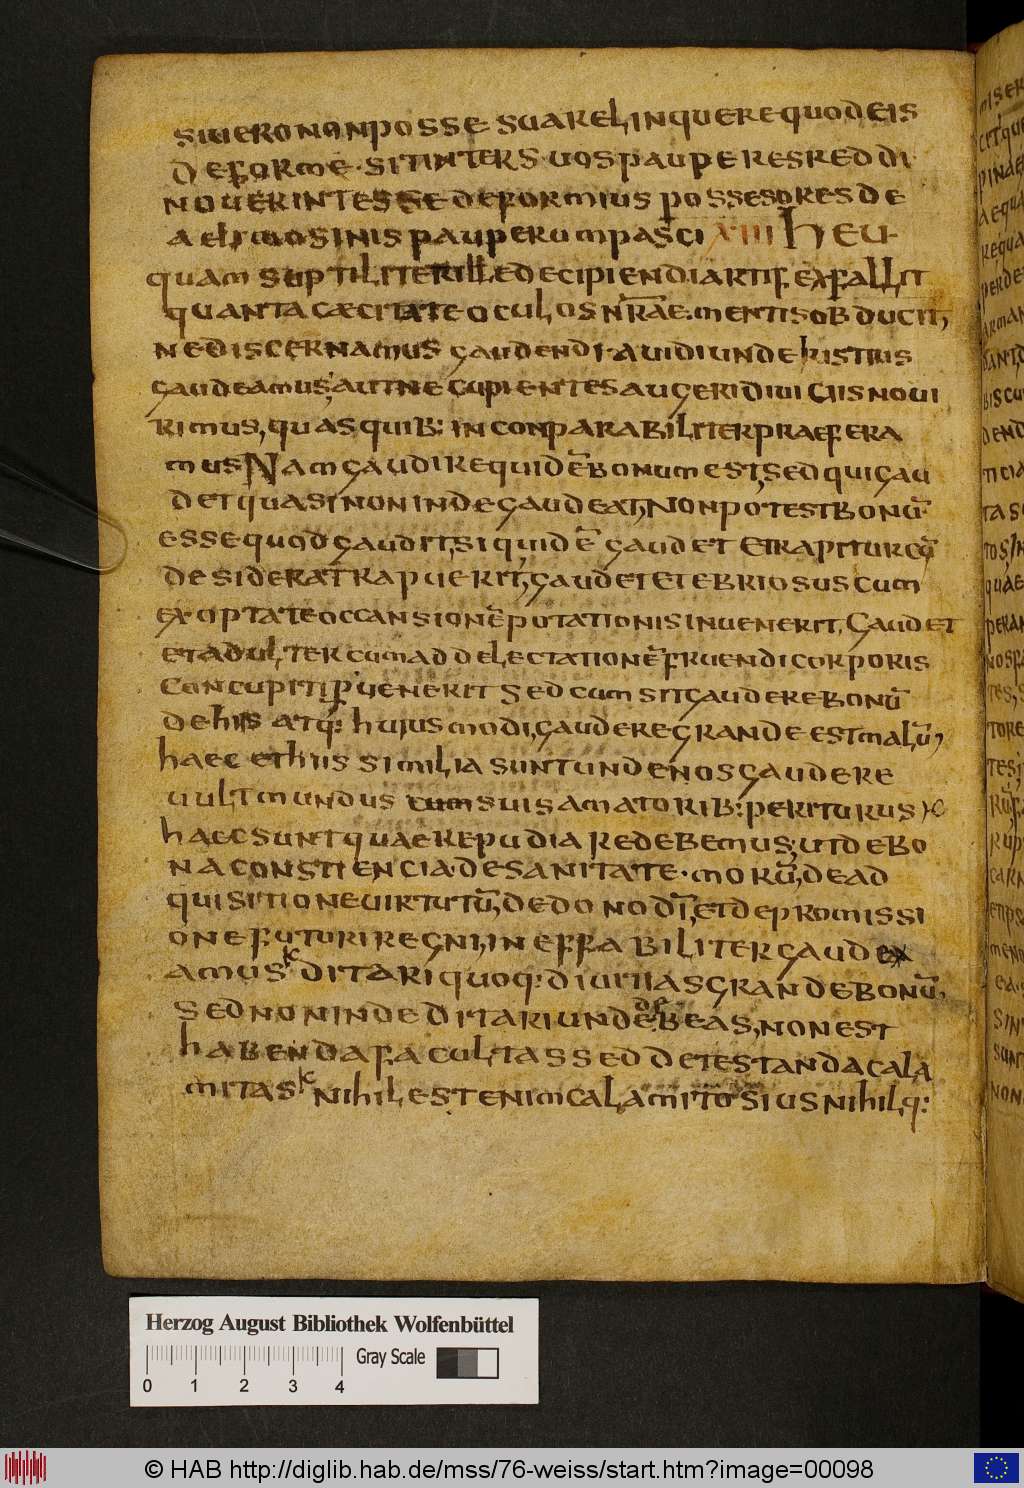 siuero nonposse suarelinquere quodeis
deforme · sitinters · uospauperesreddi
nouerintesse deformius possesores de
aelimosinis pauperum pasci XIII heu
quam suptiliterille decipiendiartif exfallit
quanta cæcitate oculos nr̄ae: mentisobducit,
nediscernamus gaudendi · auidiunde iustius
gaudeamus, autne cupientes augeri diuitiis noui
rimus, quasquib: inconparabiliter praefera
mus Nam gaudire quidē bonumest, sed qui gau
det quasi non inde gaudeat, Non potest bonū
esse quod gaudit, si quidē gaudet et raptur eā
desiderat rapuerit, gaudet et ebriosus cum
exoptate occansionē potationis inuenerit, Gaudet
et adulter cum ad delectationē fruendi corporis
concupiti puenerit Sed cum sit gaudere bonū
de his atq: hujusmodi, gaudere grande est malū,
haec et his similia sunt unde nos gaudere
uult mundus cum suis amatorib: periturus
haec sunt quae repudiare debemus, ut de bo
na constiencia · de sanitate · morū, de ad
quisitione uirtutū, de dono dī, et de promissi
one futuri regni, ineffabiliter gaude
amus ditari quoq: diuitias grande bonū,
sed non inde ditari unde beas, non est
habenda facultas sed detestanda cala
mitas nihil est enim calamitosius nihilq:
Herzog August Bibliothek Wolfenbüttel
Gray Scale
0 1 2 3 4
© HAB http://diglib.hab.de/mss/76-weiss/start.htm?image=00098